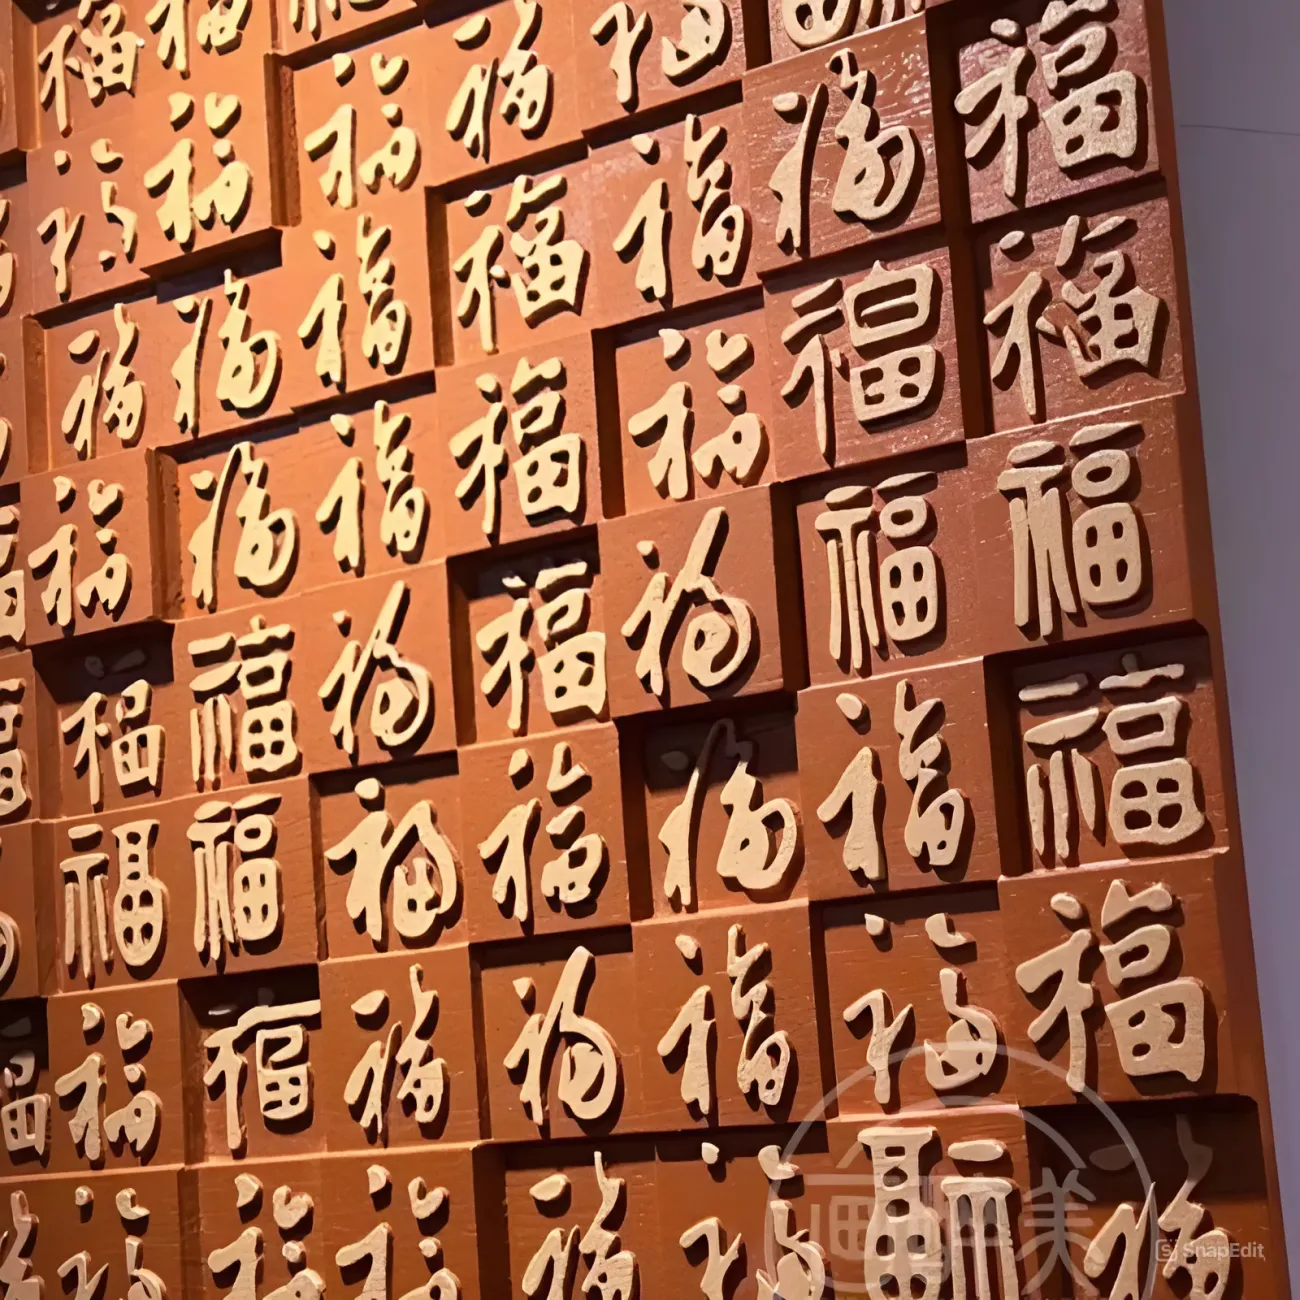 福福福
福福福福福福
福福福福福福福
福福福福福福福
福福福福福福福
福福福福福福福
福福福福福福福
福福福福福福福
美
SnapEdit